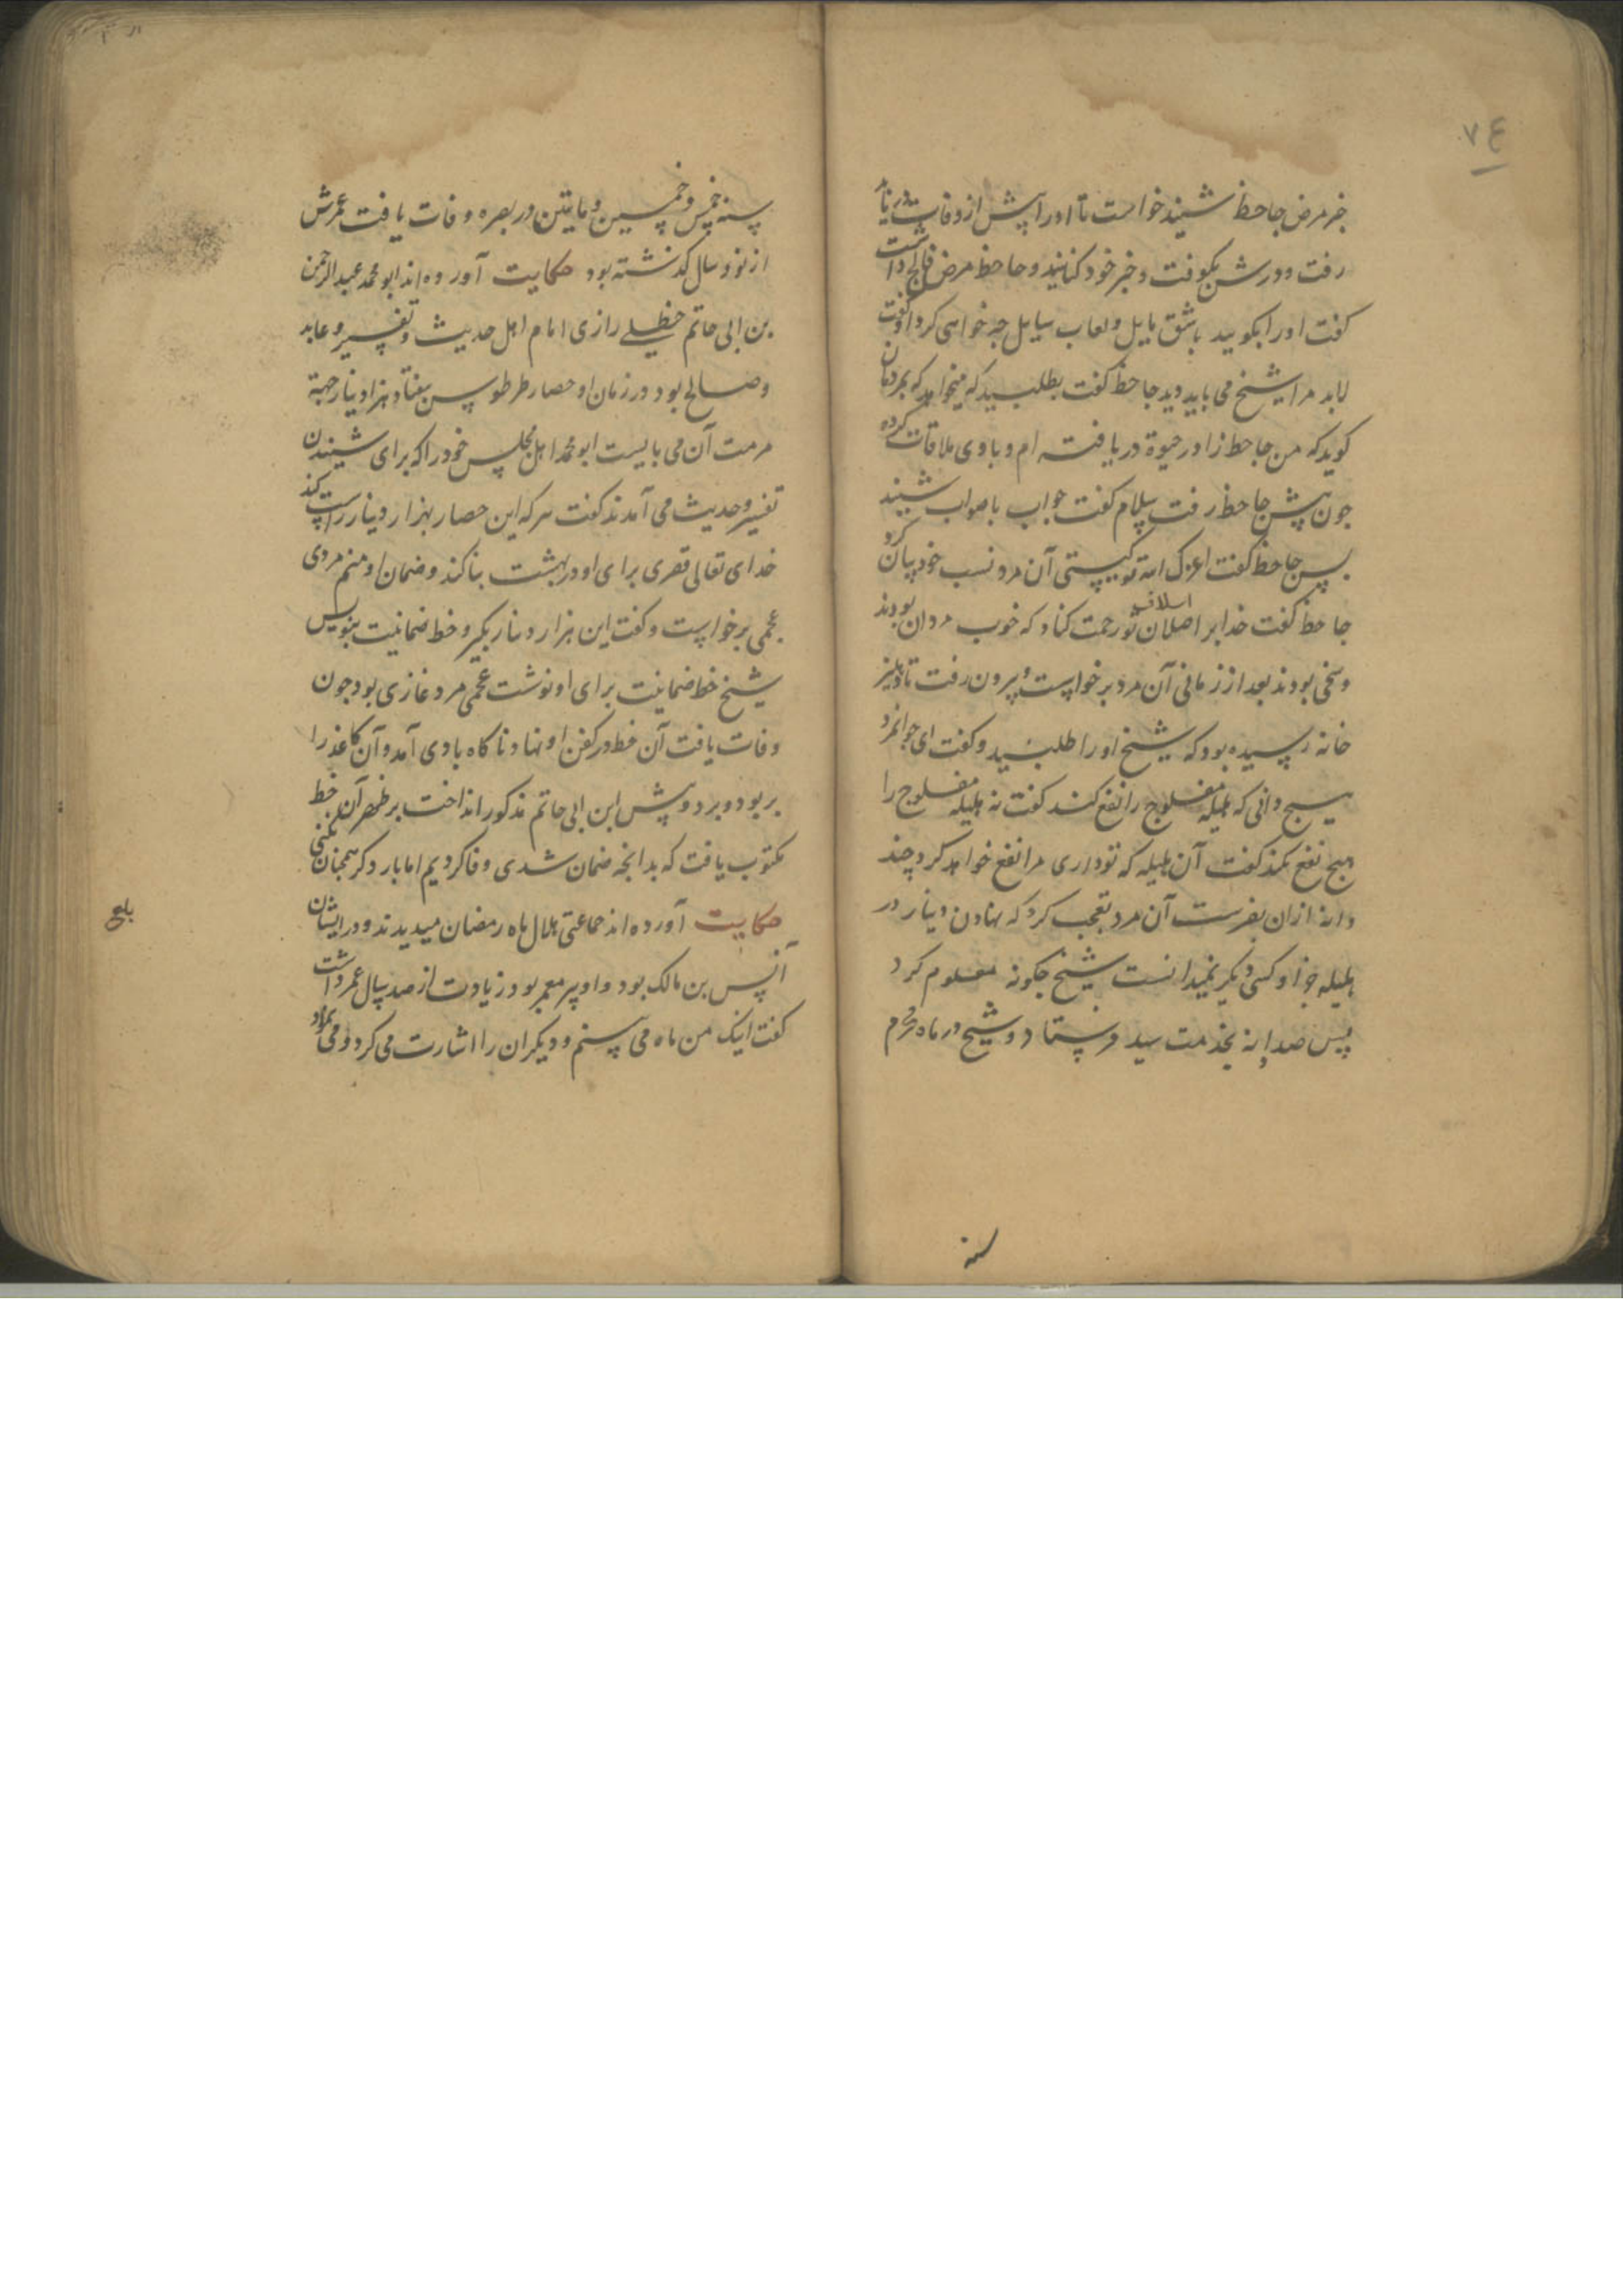 ٧٤
خبر مرض جاحظ شنید خواست تا او را پیش از وفات دریابد
رفت و درش بکوفت و خبر خود کنانید و جاحظ مرض فالج داشت
کفت او را بکویید باشق مایل و لعاب سایل چه خواهی کرد او کفت
لابد مرا شیخ می باید دید جاحظ کفت بطلبید که میخواهد که بمردمان
کوید که من جاحظ را در حیوة دریافته ام و با وی ملاقات کرده
جون پیش جاحظ رفت سلام کفت جواب باصواب شنید
پس جاحظ کفت اعزک الله تو کیستی آن مرد نسب خود بیان کرد
جاحظ کفت خدا بر اصلان تو رحمت کناد که خوب مردان بودند
اسلاف
و سخی بودند بعد از زمانی آن مرد برخواست و بیرون رفت تا دهلیز
خانه رسیده بود که شیخ او را طلبید و کفت ای جوانمرد
هیج دانی که هلیله مفلوج را نفع کند کفت نه هلیله مفلوج را
هیج نفع نکند کفت آن هلیله که تو داری مرا نفع خواهد کرد چند
دانه ازان بفرست آن مرد تعجب کرد که نهادن دینار در
هلیله جز او کسی دیکر نمیدانست شیخ جکونه معلوم کرد
پس صد دانه بخدمت سید فرستاد و شیخ در ماه محرم
سنه
سنه خمس و خمسین و مایتین در بصره وفات یافت عمرش
از نود سال کذشته بود حکایت آورده اند ابو محمد عبدالرحمن
بن ابی حاتم حنظلی رازی امام اهل حدیث و تفسیر و عابد
و صالح بود در زمان او حصار طرطوس بهفتاد هزار دینار جهة
مرمت آن می بایست ابو محمد اهل مجلس خود را که برای شنیدن
تفسیر و حدیث می آمدند کفت هر که این حصار بهزار دینار راست کند
خدای تعالی قصری برای او در بهشت بنا کند و ضمان او منم مردی
عجمی برخواست و کفت این هزار دینار بکیر و خط ضمانیت بنویس
شیخ خط ضمانیت برای او نوشت عجمی مرد غازی بود جون
وفات یافت آن خط در کفن او نهاد ناکاه بادی آمد و آن کاغذ را
بربود و برد و پیش ابن ابی حاتم مذکور انداخت بر ظهر آن خط
مکتوب یافت که بدانچه ضمان شدی وفا کردیم اما بار دکر همچنان نکنی
حکایت آورده اند جماعتی هلال ماه رمضان میدیدند و در ایشان
انس بن مالک بود و او پیر معمر بود زیادت از صد سال عمر داشت
کفت اینک من ماه می بینم و دیکران را اشارت می کرد و می نمود
بلغ